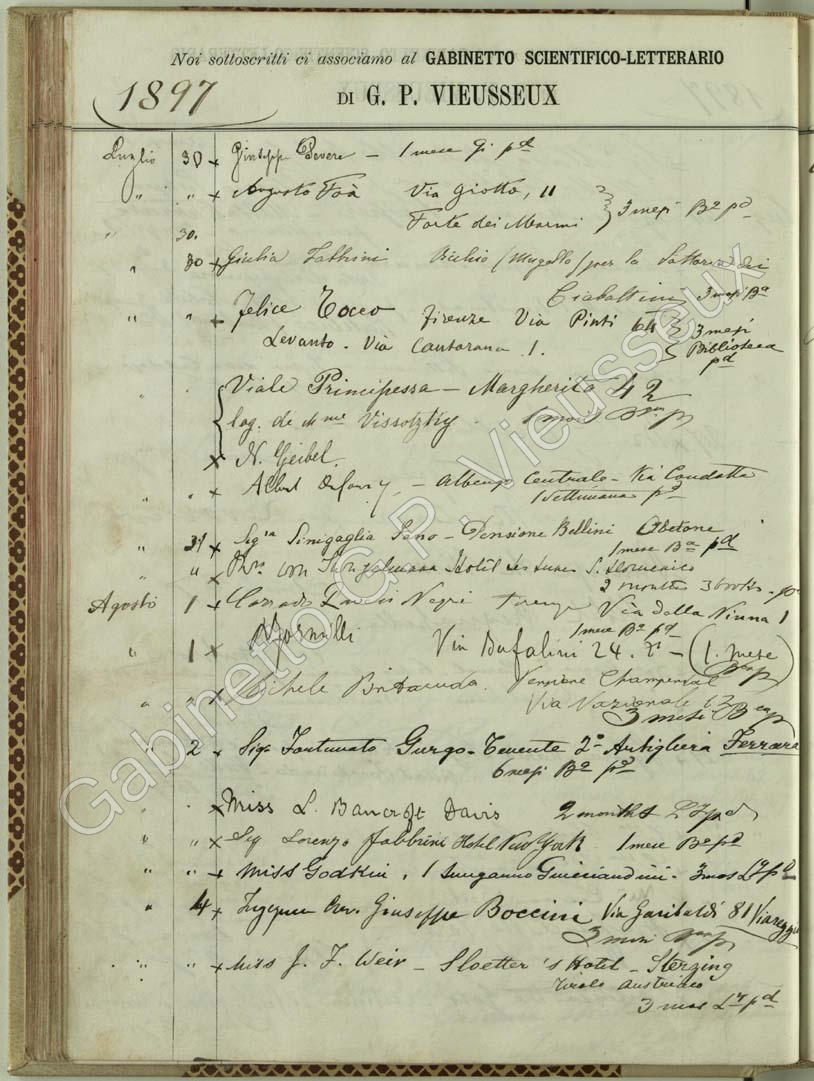 Noi sottoscritti ci associamo al GABINETTO SCIENTIFICO-LETTERARIO
1897
DI G. P. VIEUSSEUX
Luglio 30 Giuseppe Severe — 1 mese Gi pd
" " Augusto Foà Via Giotto, 11
Forte dei Marmi } 3 mesi Ba pd
" 30.
" 30 Giulia Fabbrini Vicchio (Mugello) per la Fattoria di
3 mesi Ba
" " Felice Tocco Firenze Via Pinti 64 } 3 mesi
Levanto. Via Cantarana 1. Biblioteca
pd
Viale Principessa — Margherita 42
Mme Vissotzky. 1 mois
N. Geibel.
" " Albert — Albergo Centrale — Via Condotta
1 Settimana pd
" 31 Sigra Sinigaglia — Pensione Bellini Abetone
1 mese Ba pd
" " Mrs von Hotel S. Domenico
2 months 3 books. pd
Agosto 1 Corrado Negri Firenze Via della Ninna 1
1 mese Ba pd
" 1 Via Bufalini 24. — (1. mese
" " Michele Pensione
Via Nazionale
3 mesi B
" 2 Sigr Fortunato Gurgo — Tenente 2o Artiglieria Ferrara
6 mesi Ba pd
" " Miss L. Bancroft Davis 2 months L7 pd
" " Sig Lorenzo Fabbrini Hotel New York 1 mese Ba pd
" " Miss Godkin, 1 Lungarno Guicciardini. 3 mos L7 pd
" 4 Giuseppe Boccini Via Garibaldi 81 Viareggio
" " Miss J. F. Weir — Stoetter's Hotel — Sterzing
Tirolo Austriaco
3 mos L7 pd
Gabinetto G.P. Vieusseux